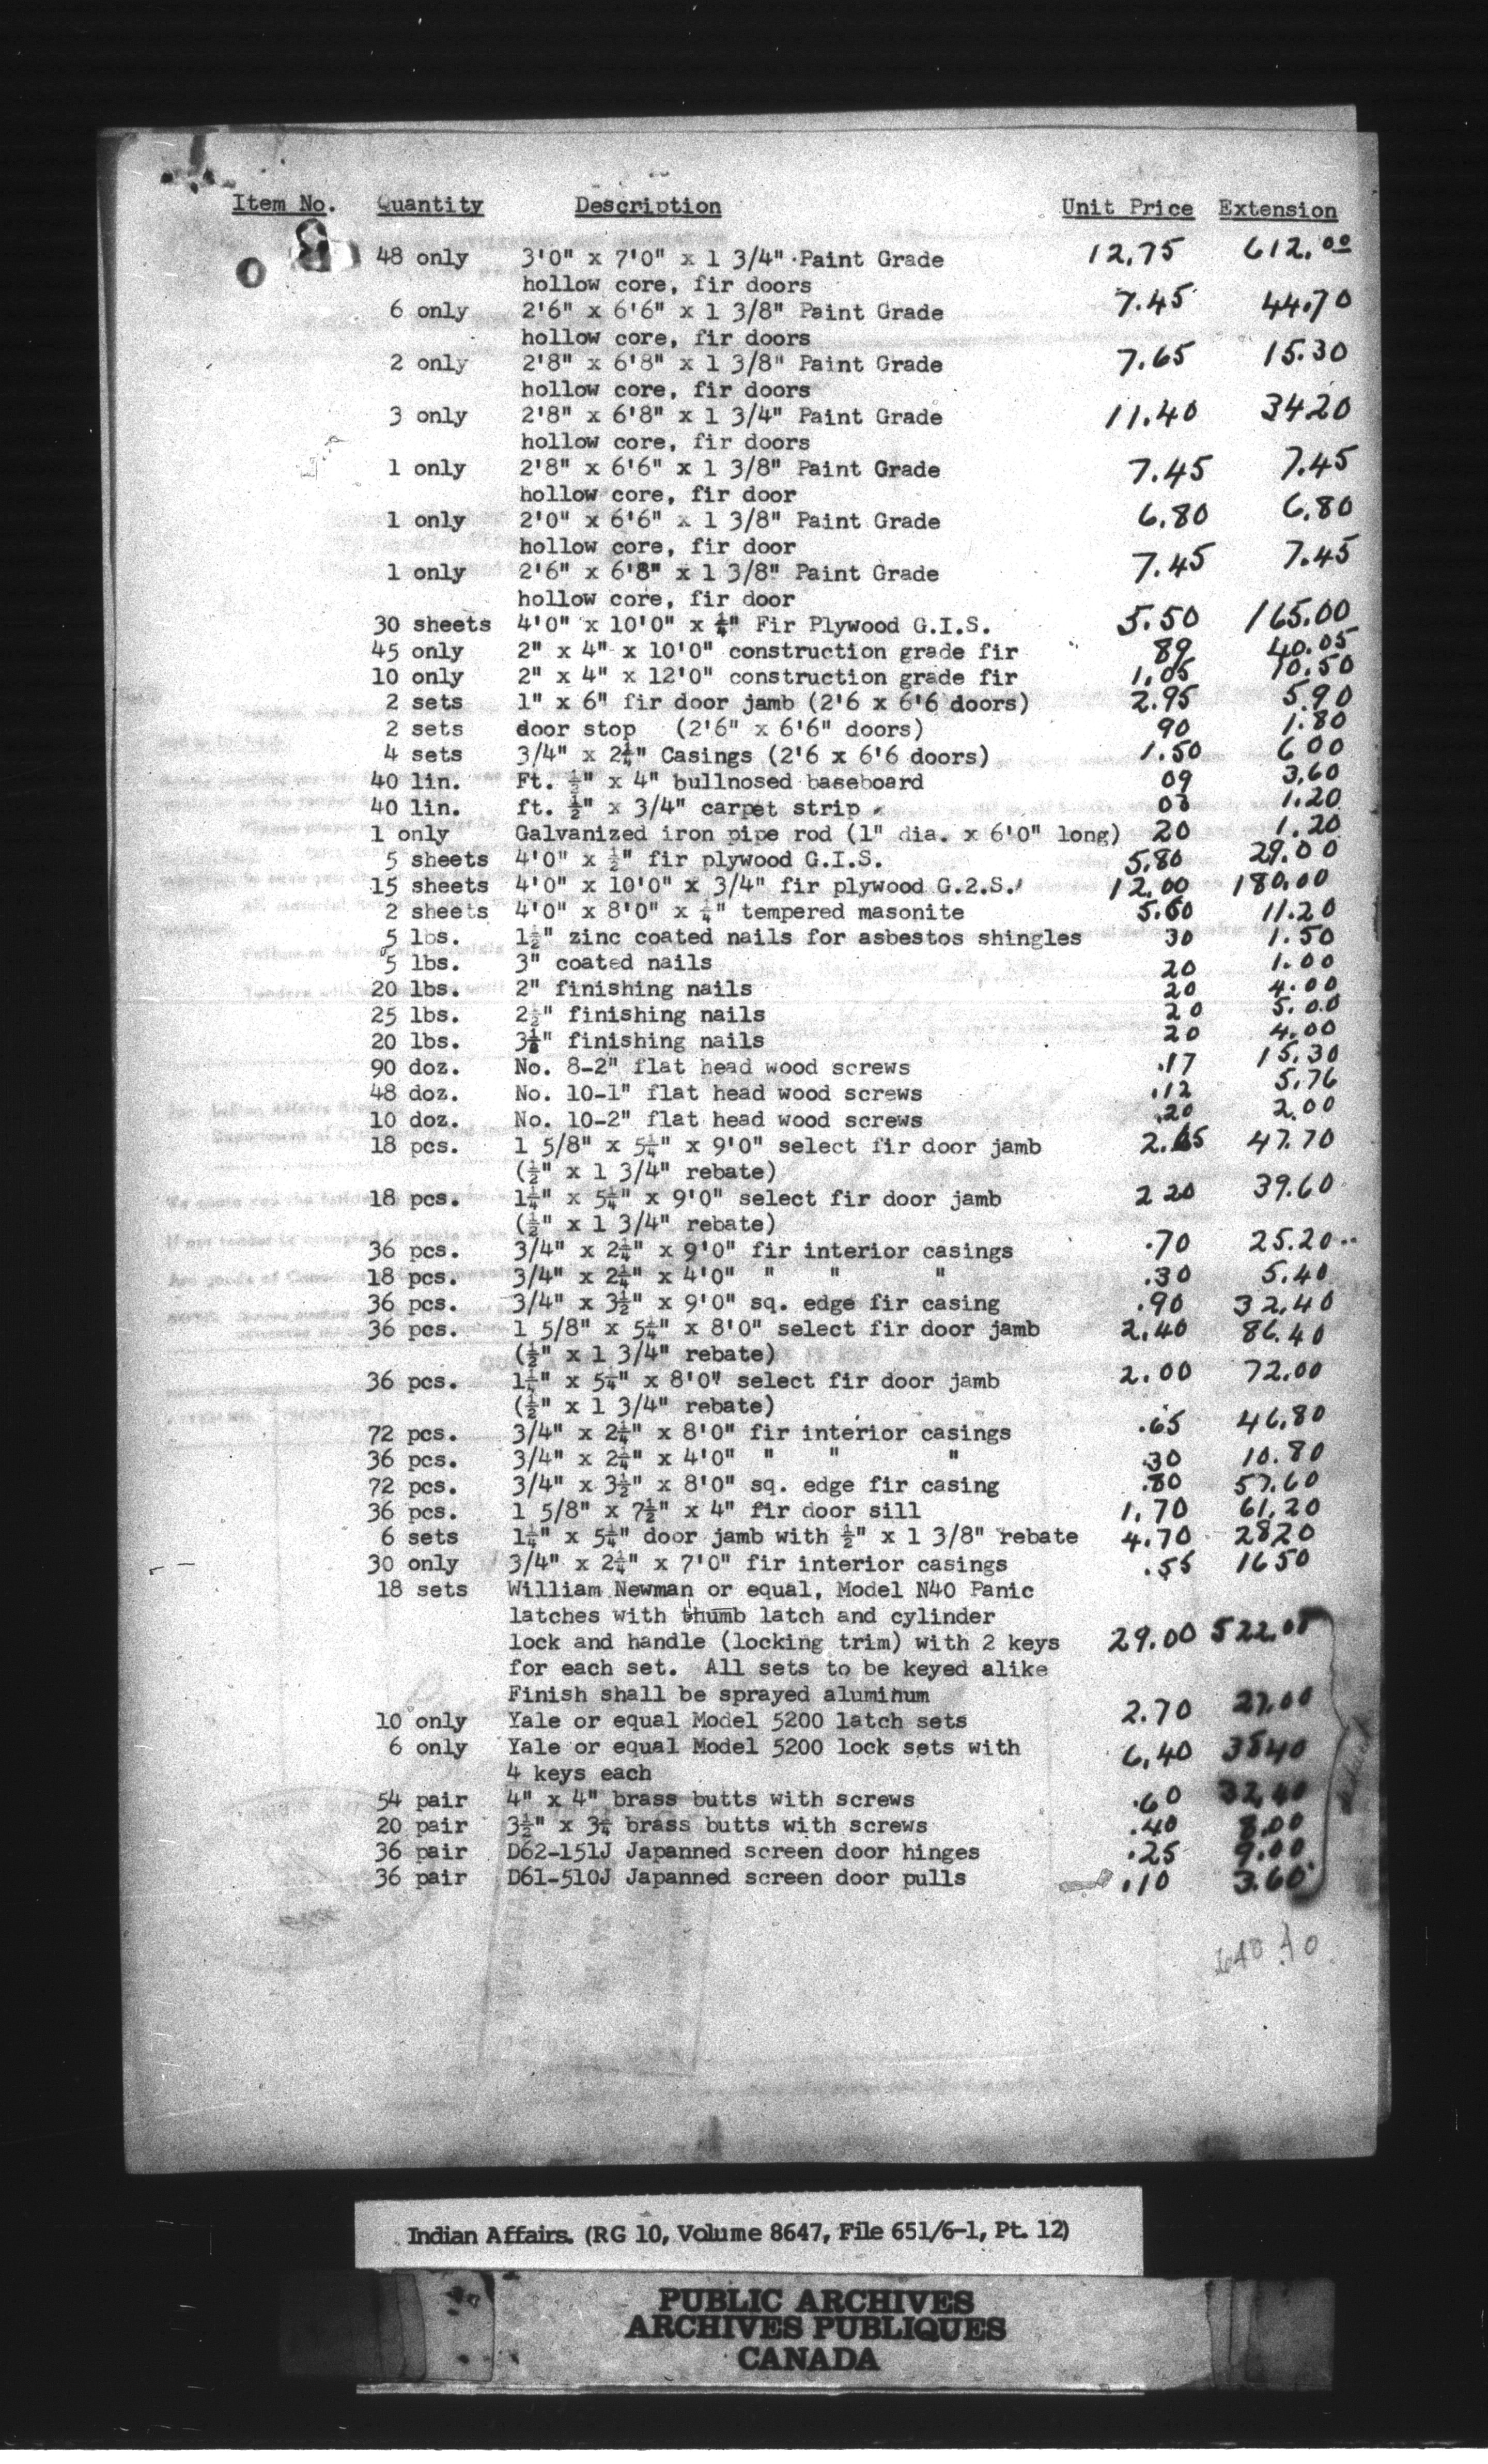 Item No. Quantity Description Unit Price Extension
48 only 3'0" x 7'0" x 1 3/4" Paint Grade 12.75 612.00
hollow core, fir doors
6 only 2'6" x 6'6" x 1 3/8" Paint Grade 7.45 44.70
hollow core, fir doors
2 only 2'8" x 6'8" x 1 3/8" Paint Grade 7.65 15.30
hollow core, fir doors
3 only 2'8" x 6'8" x 1 3/4" Paint Grade 11.40 34 20
hollow core, fir doors
1 only 2'8" x 6'6" x 1 3/8" Paint Grade 7.45 7.45
hollow core, fir door
1 only 2'0" x 6'6" x 1 3/8" Paint Grade 6.80 6.80
hollow core, fir door
1 only 2'6" x 6'8" x 1 3/8" Paint Grade 7.45 7.45
hollow core, fir door
30 sheets 4'0" x 10'0" x ¼" Fir Plywood G.I.S. 5.50 165.00
45 only 2" x 4" x 10'0" construction grade fir 89 40.05
10 only 2" x 4" x 12'0" construction grade fir 1.05 10.50
2 sets 1" x 6" fir door jamb (2'6 x 6'6 doors) 2.95 5.90
2 sets door stop (2'6" x 6'6" doors) 90 1.80
4 sets 3/4" x 2¼" Casings (2'6 x 6'6 doors) 1.50 6 00
40 lin. Ft. ½" x 4" bullnosed baseboard 09 3.60
40 lin. ft. ½" x 3/4" carpet strip 03 1.20
1 only Galvanized iron pipe rod (1" dia. x 6'0" long) 20 1.20
5 sheets 4'0" x ½" fir plywood G.I.S. 5.80 29.00
15 sheets 4'0" x 10'0" x 3/4" fir plywood G.2.S. 12.00 180.00
2 sheets 4'0" x 8'0" x ¼" tempered masonite 5.60 11.20
5 lbs. 1½" zinc coated nails for asbestos shingles 30 1.50
5 lbs. 3" coated nails 20 1.00
20 lbs. 2" finishing nails 20 4.00
25 lbs. 2½" finishing nails 20 5.00
20 lbs. 3½" finishing nails 20 4.00
90 doz. No. 8-2" flat head wood screws .17 15.30
48 doz. No. 10-1" flat head wood screws .12 5.76
10 doz. No. 10-2" flat head wood screws .20 2.00
18 pcs. 1 5/8" x 5¼" x 9'0" select fir door jamb 2.65 47.70
(½" x 1 3/4" rebate)
18 pcs. 1¼" x 5¼" x 9'0" select fir door jamb 2 20 39.60
(½" x 1 3/4" rebate)
36 pcs. 3/4" x 2¼" x 9'0" fir interior casings .70 25.20
18 pcs. 3/4" x 2¼" x 4'0" " " " .30 5.40
36 pcs. 3/4" x 3½" x 9'0" sq. edge fir casing .90 32.40
36 pcs. 1 5/8" x 5¼" x 8'0" select fir door jamb 2.40 86.40
(½" x 1 3/4" rebate)
36 pcs. 1¼" x 5¼" x 8'0" select fir door jamb 2.00 72.00
(½" x 1 3/4" rebate)
72 pcs. 3/4" x 2¼" x 8'0" fir interior casings .65 46.80
36 pcs. 3/4" x 2¼" x 4'0" " " " .30 10.80
72 pcs. 3/4" x 3½" x 8'0" sq. edge fir casing .80 57.60
36 pcs. 1 5/8" x 7½" x 4" fir door sill 1.70 61.20
6 sets 1¼" x 5¼" door jamb with ½" x 1 3/8" rebate 4.70 28 20
30 only 3/4" x 2¼" x 7'0" fir interior casings .55 16 50
18 sets William Newman or equal, Model N40 Panic
latches with thumb latch and cylinder
lock and handle (locking trim) with 2 keys 29.00 522.00
for each set. All sets to be keyed alike
Finish shall be sprayed aluminum
10 only Yale or equal Model 5200 latch sets 2.70 27.00
6 only Yale or equal Model 5200 lock sets with 6.40 38 40
4 keys each
54 pair 4" x 4" brass butts with screws .60 32.40
20 pair 3½" x 3¼ brass butts with screws .40 8.00
36 pair D62-151J Japanned screen door hinges .25 9.00
36 pair D61-510J Japanned screen door pulls .10 3.60
640.40
Indian Affairs. (RG 10, Volume 8647, File 651/6-1, Pt. 12)
PUBLIC ARCHIVES
ARCHIVES PUBLIQUES
CANADA